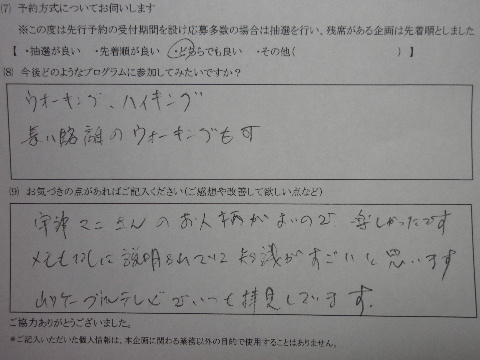 (7) 予約方式についてお伺いします
※この度は先行予約の受付期間を設け応募多数の場合は抽選を行い、残席がある企画は先着順としました
【 ・抽選が良い ・先着順が良い ・どちらでも良い ・その他( ) 】
(8) 今後どのようなプログラムに参加してみたいですか?
ウォーキング、ハイキング
長い距離のウォーキングも可
(9) お気づきの点があればご記入ください(ご感想や改善して欲しい点など)
さんのお人柄がよいので 楽しかったです
メモもなしに説明されていて知識がすごいと思います
ケーブルテレビでいつも拝見しています.
ご協力ありがとうございました。
*ご記入いただいた個人情報は、本企画に関わる業務以外の目的で使用することはありません。